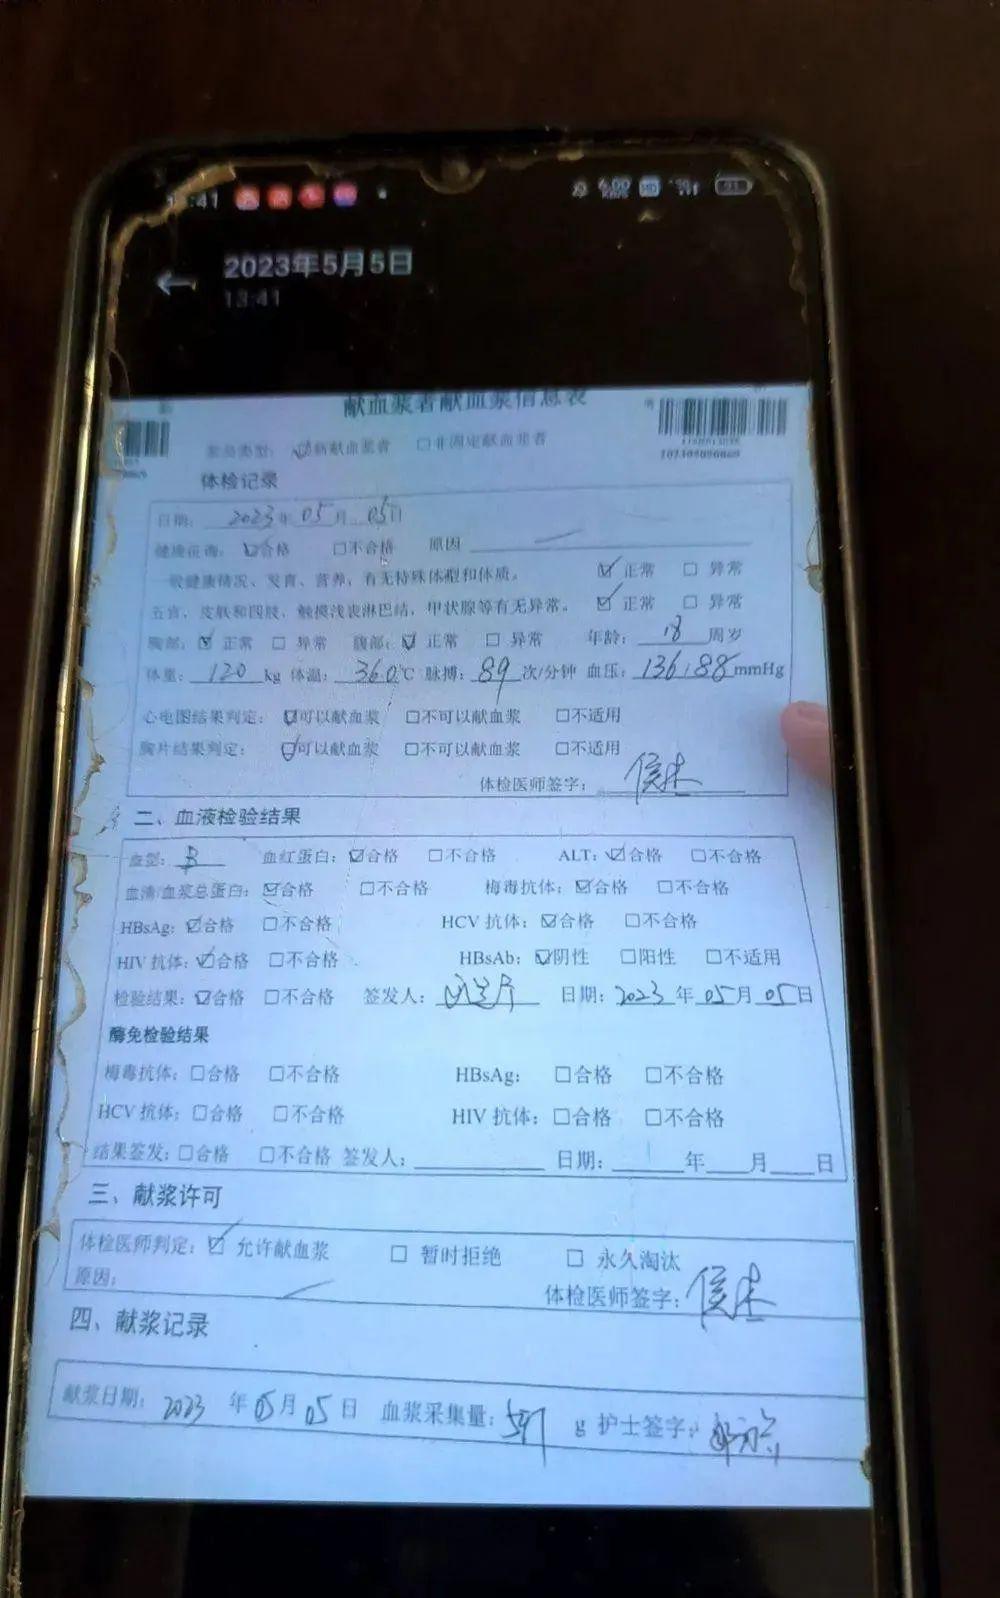 2023年5月5日
13:41
献血浆者献血浆信息表
☑新献血浆者 □非固定献血浆者
体检记录
日期: 2023年05月05日
健康征询: ☑合格 □不合格 原因
一般健康情况、发育、营养,有无特殊体型和体质。 ☑正常 □异常
五官,皮肤和四肢,触摸浅表淋巴结,甲状腺等有无异常。 ☑正常 □异常
胸部: ☑正常 □异常 腹部: ☑正常 □异常 年龄: 18 周岁
体重: 120 kg 体温: 36.0℃ 脉搏: 89 次/分钟 血压: 136/88 mmHg
心电图结果判定: ☑可以献血浆 □不可以献血浆 □不适用
胸片结果判定: ☑可以献血浆 □不可以献血浆 □不适用
体检医师签字:
二、血液检验结果
血型: B 血红蛋白: ☑合格 □不合格 ALT: ☑合格 □不合格
血清/血浆总蛋白: ☑合格 □不合格 梅毒抗体: ☑合格 □不合格
HBsAg: ☑合格 □不合格 HCV 抗体: ☑合格 □不合格
HIV 抗体: ☑合格 □不合格 HBsAb: ☑阴性 □阳性 □不适用
检验结果: ☑合格 □不合格 签发人: 日期: 2023年05月05日
酶免检验结果
梅毒抗体: □合格 □不合格 HBsAg: □合格 □不合格
HCV 抗体: □合格 □不合格 HIV 抗体: □合格 □不合格
结果签发: □合格 □不合格 签发人: 日期: 年 月 日
三、献浆许可
体检医师判定: ☑允许献血浆 □暂时拒绝 □永久淘汰
原因:
体检医师签字:
四、献浆记录
献浆日期: 2023年05月05日 血浆采集量: g 护士签字: